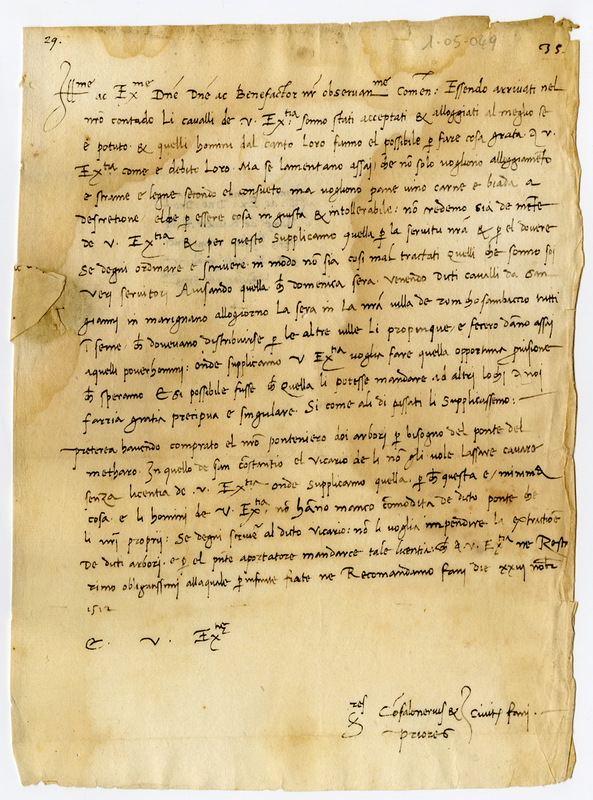 29.
1-05-049
35.
Ill.me ac Ex.me Dne Dne ac Benefactor nr observan.me Comen: Essendo arrivati nel
nro contado Li cavalli de v. Ex.tia sonno stati acceptati & alloggiati al meglio se
è potuto. & quelli homini dal canto Loro fanno el possibile p fare cosa grata a v.
Ex.tia come è debito Loro. Ma se lamentano assai che nō solo vogliono allogiamēto
e strame e legne secondo el consueto ma vogliono pane vino carne e biada a
descretione. p essere cosa ingiusta & intollerabile: nō credemo sia de mēte
de v. Ex.tia & per questo Supplicamo quella p la servitu nrā & p el dovere
Se degni ordinare e scrivere in modo nō sia cosi mal tractati quelli che sonno soi
veri servitori Avisando quella che domenica sera. venendo dicti cavalli da San
gianni in marignano allogiorno La sera in La nrā villa de tutti
inseme che dovevano distribuirse p le altre ville Li propinque, e fecero dāno assai
a quelli poverhomini: onde supplicamo v Ex.tia voglia fare quella opportuna pvisione
che speramo E si possibile fusse che Quella li potesse mandare ad altri lochi a noi
farria gratia precipua e singulare. Si come ali di passati li Supplicassemo:
preterea havendo comprato el nrō ponteniero doi arbori p bisogno del ponte del
metharo. In quello de san costantio el vicario de li nō gli vole Lassare cavare
senza licentia de .v. Ex.tia onde Supplicamo quella. p che questa e minima
cosa. e li homini de v. Ex.tia nō hāno manco cōmodita de dicto ponte che
li nri proprii: Se degni scrivere al dicto vicario: nō li voglia impendire la extractione
De dicti arbori. e p el pnte aportatore mandarce tale licentia. che A .v. Ex.tia ne Rest
rimo obligatissimi alla quale p infinite fiate ne Recomandamo fani die xxiii novēb
1512
E. v. Ex.tie
Confalonerius & Priores Civit. fani.